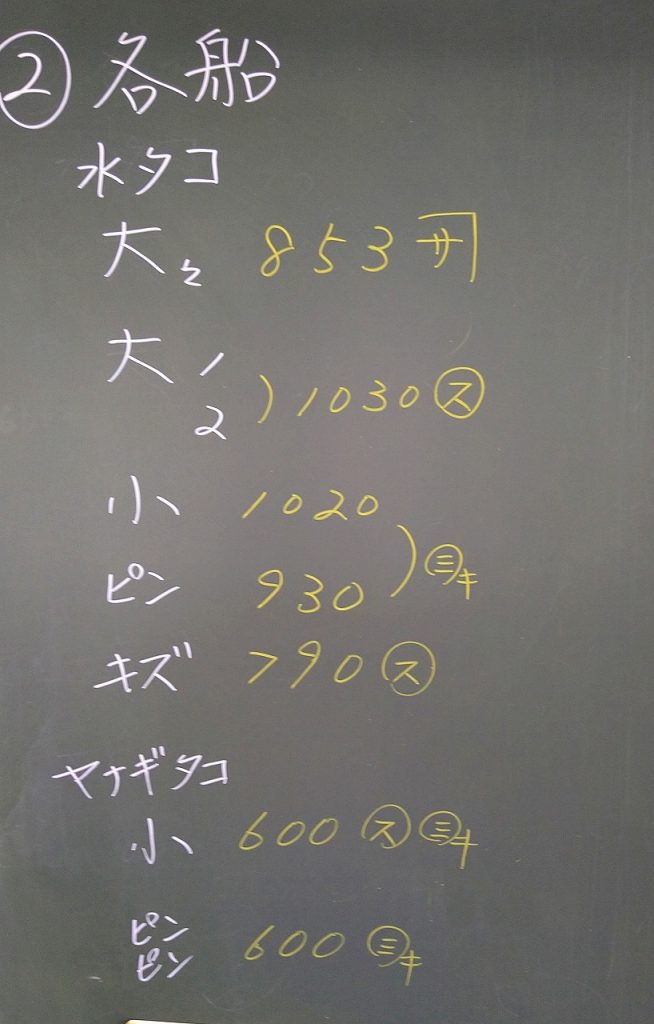 ② 各船
水タコ
大々 853 サ
大 1
2 ) 1030 ㋜
小 1020
ピン 930 ) ㋯キ
キズ 790 ㋜
ヤナギタコ
小 600 ㋜ ㋯キ
ピン
ピン 600 ㋯キ